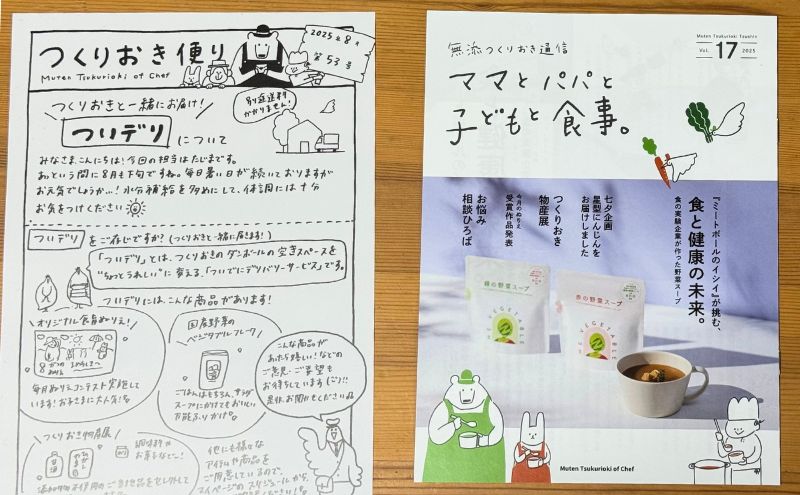 つくりおき便り
Muten Tsukurioki of Chef
2025年8月
第53号
つくりおきと一緒にお届け!
別途送料かかりません!
ついデリについて
みなさま、こんにちは!今回の担当はたじまです。
あっという間に8月も下旬ですね。毎日暑い日が続いておりますが
お元気でしょうか…!水分補給を多めにして、体調には十分
お気をつけください
ついデリをご存じですか?(つくりおきと一緒に届きます!)
「ついデリ」とは、つくりおきのダンボールの空きスペースを
"ちょっとうれしい"に変える、「ついでにデリバリーサービス」です。
ついデリには、こんな商品があります!
オリジナル食育ぬりえ!
8がつの
毎月ぬりえコンテスト実施して
います!お子さまに大人気!
国産野菜の
ベジタブルフレーク
ごはんはもちろん、サラダ
スープにかけてもおいしい
万能ふりかけ。
こんな商品が
あったら嬉しい!などの
ご意見・ご要望も
お待ちしています(^^)!!
是非、お聞かせください
つくりおき物産展
調味料や
お菓子など…!
甘酒
添加物不使用のご当地品をセレクトして
他にも様々な
アイテムや商品を
ご用意しているので、
マイページのスケジュールから、
Muten Tsukurioki Tsushin
Vol. 17 2025
無添つくりおき通信
ママとパパと
子どもと食事。
『ミートボールのイシイ』が挑む、
食と健康の未来。
食の実験企業が作った野菜スープ
七夕企画
星型にんじんを
お届けしました
つくりおき
物産展
今月のぬりえ
受賞作品発表
お悩み
相談ひろば
緑の野菜スープ
赤の野菜スープ
THE VEGETABLE
Muten Tsukurioki of Chef